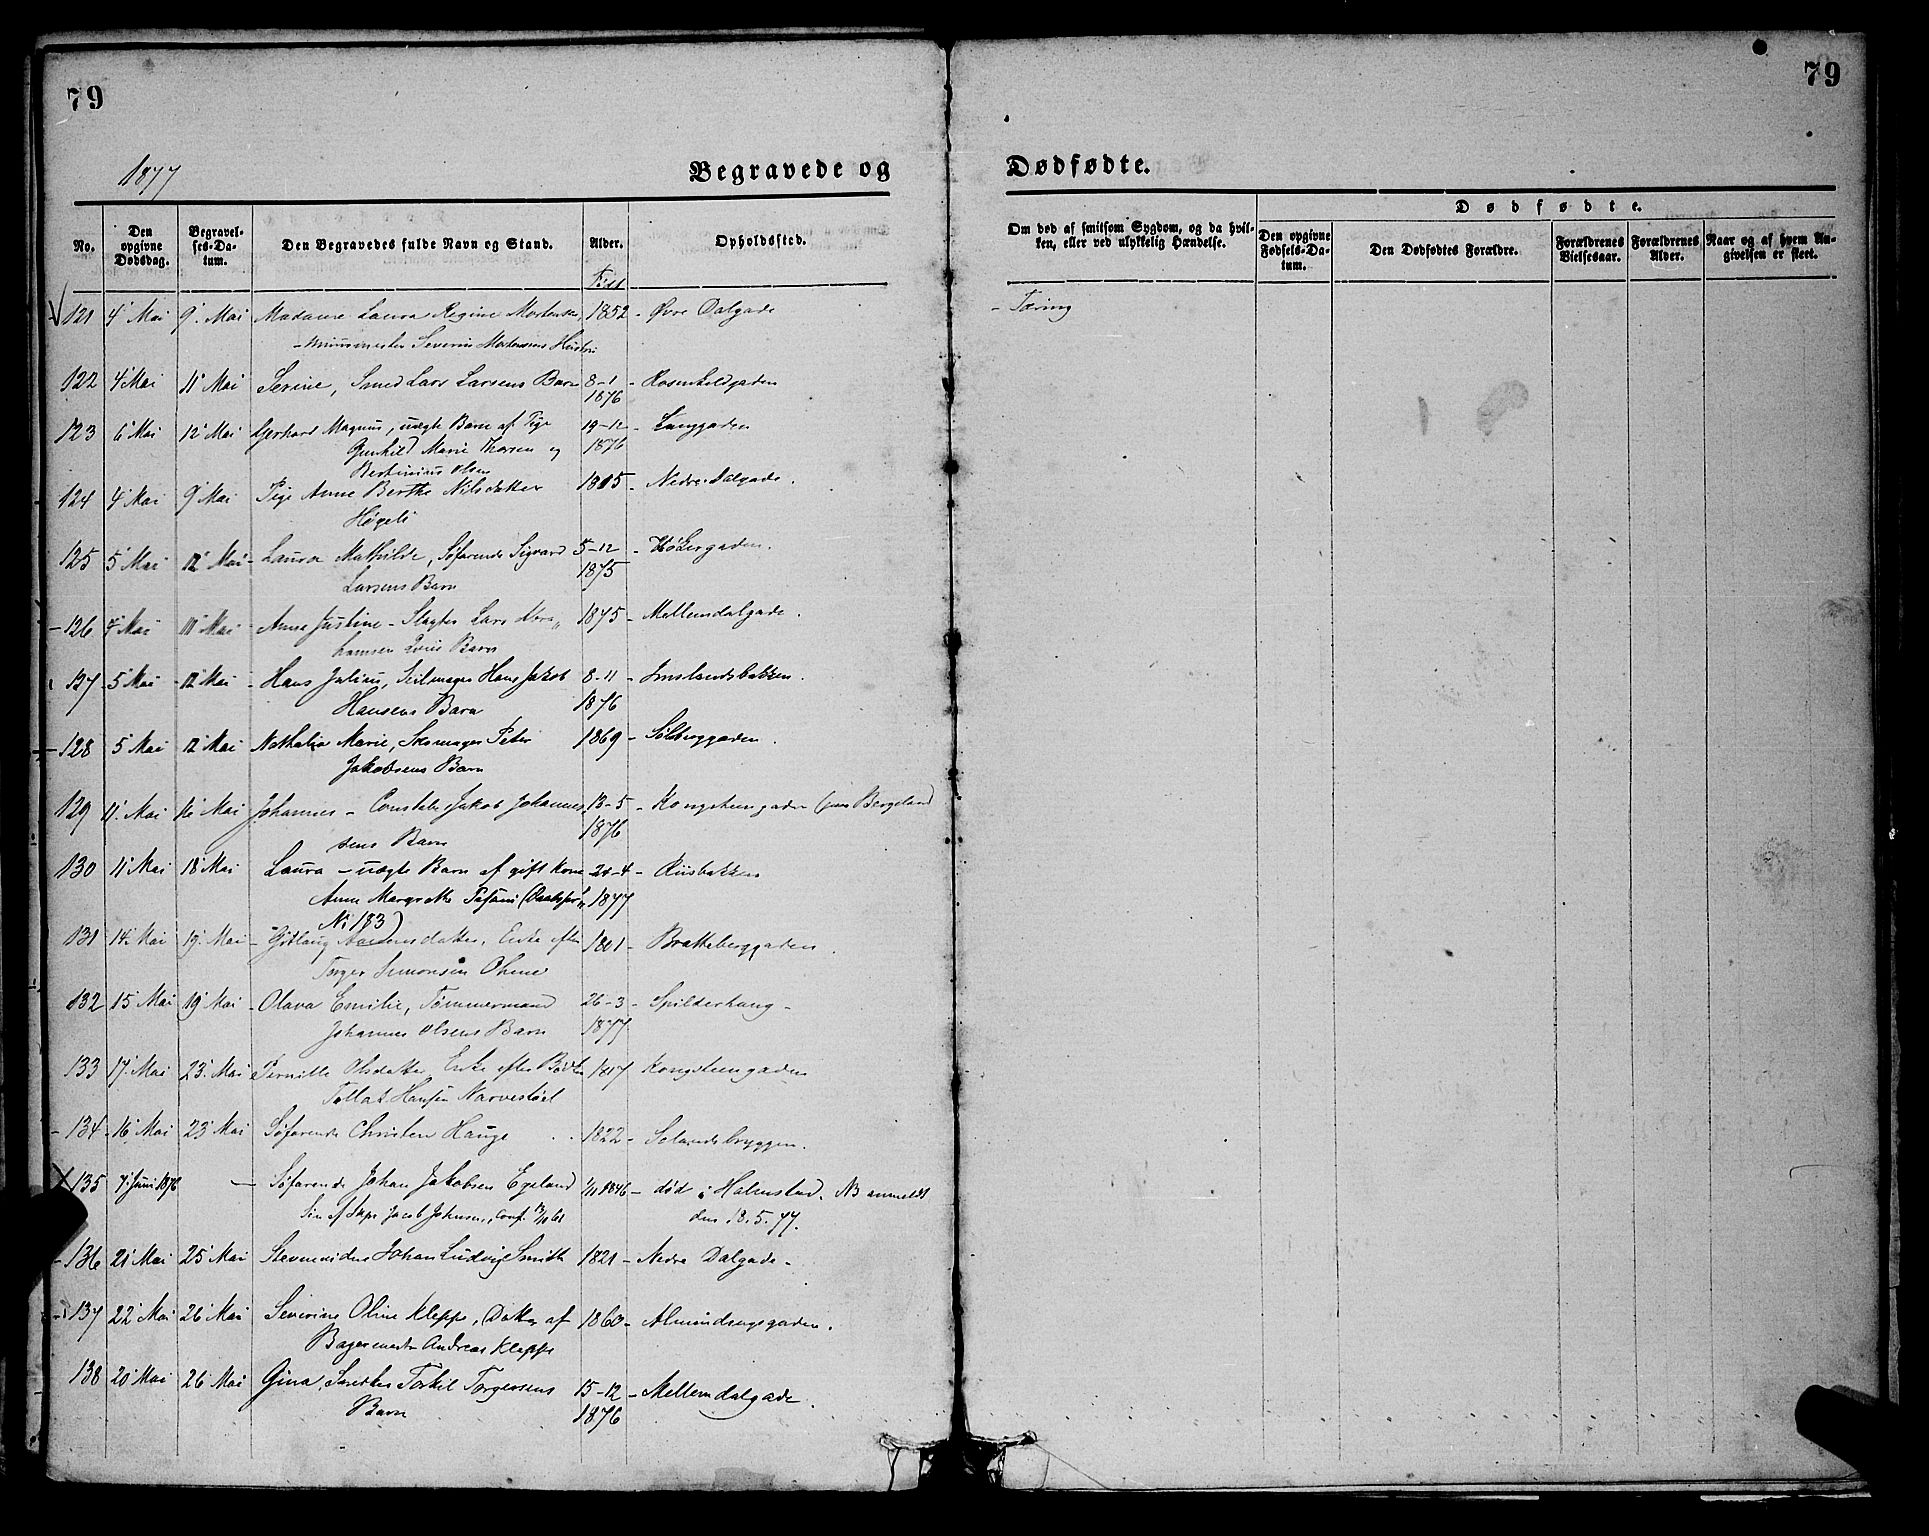 79
79
1877
Begravede og
Dødfødte.
No.
Den opgivne Dødsdag.
Begravelses-Datum.
Den Begravedes fulde Navn og Stand.
Alder.
Opholdssted.
Om død af smitsom Sygdom, og da hvilken, eller ved ulykkelig Hændelse.
Dødfødte.
Den opgivne Fødsels-Datum.
Den Dødfødtes Forældre.
Forældrenes Vielsesaar.
Forældrenes Alder.
Naar og af hvem Angivelsen er skeet.
121 4' Mai 9' Mai Madame Laura Regine Mortensen, 1852 - Øvre Dalgade - Tæring
- Severin Mortensens Hustru
122 4' Mai 11' Mai Serine, Smed Lars Larsens Barn 8-1 - Rosenkildgaden
1876
123 6' Mai 12' Mai Gerhard Magnus, uægte Barn af Pige 19-12 - Langgaden
Gunhild Marie Thorsen og 1876
Bertinius Olsen
124 4' Mai 9' Mai Pige Anne Berthe Nilsdatter 1815 - Nedre Dalgade.
Høgeli
125 5' Mai 12' Mai - Laura Mathilde, Søfarende Sigvard 5-12 - Høkergaden.
Larsens Barn 1875
126 4' Mai 11' Mai Anne Justine - Slagter Lars 1875 - Mellemdalgade.
Barn
127 5' Mai 12' Mai - Hans Julius, Seilmager Hans Jakob 8-11 - Imslandsbakken.
Hansens Barn 1876
128 5' Mai 12' Mai Nathalia Marie, Skomager Peter 1869 - Sølvberggaden.
Jakobsens Barn
129 11' Mai 16' Mai Johannes - Constabel Jakob Johannes, 13-5 - Kongsteengaden Bergeland
sens Barn 1876
130 11' Mai 18' Mai Laura - uægte Barn af gift Kone 24-4 - Riisbakken
Anne Margrethe 1877
No 183)
131 14' Mai 19' Mai - datter, Enke efter 1801 - Bratteberggaden
Torger Simonsen
132 15' Mai 19' Mai - Olava Emilie, Tømmermand 26-3 - Spilderhaug -
Johannes Olsens Barn 1877
133 17' Mai 23' Mai Pernille Olsdatter, Enke efter 1817 Kongsteengaden
Hansen
134 16' Mai 23' Mai Søfarende Christen Hauge 1822 - Solandsbryggen.
135 7' Juni 1876 - Søfarende Johan Jakobsen Egeland 1846 - død i Halmstad. NB anmeldt
Søn af Skpr Jacob Johnsen, Conf. den 18.5.77.
136 21' Mai 25' Mai Johan Ludvig Smith 1821 - Nedre Dalgade -
137 22' Mai 26' Mai Severine Oline Kleppe, Datter af 1860 - Almindingsgaden.
Bagermester Andreas Kleppe
138 20' Mai 26' Mai Gina, Snedker Torkil Torgersens 15-12 - Mellemdalgade.
Barn 1876